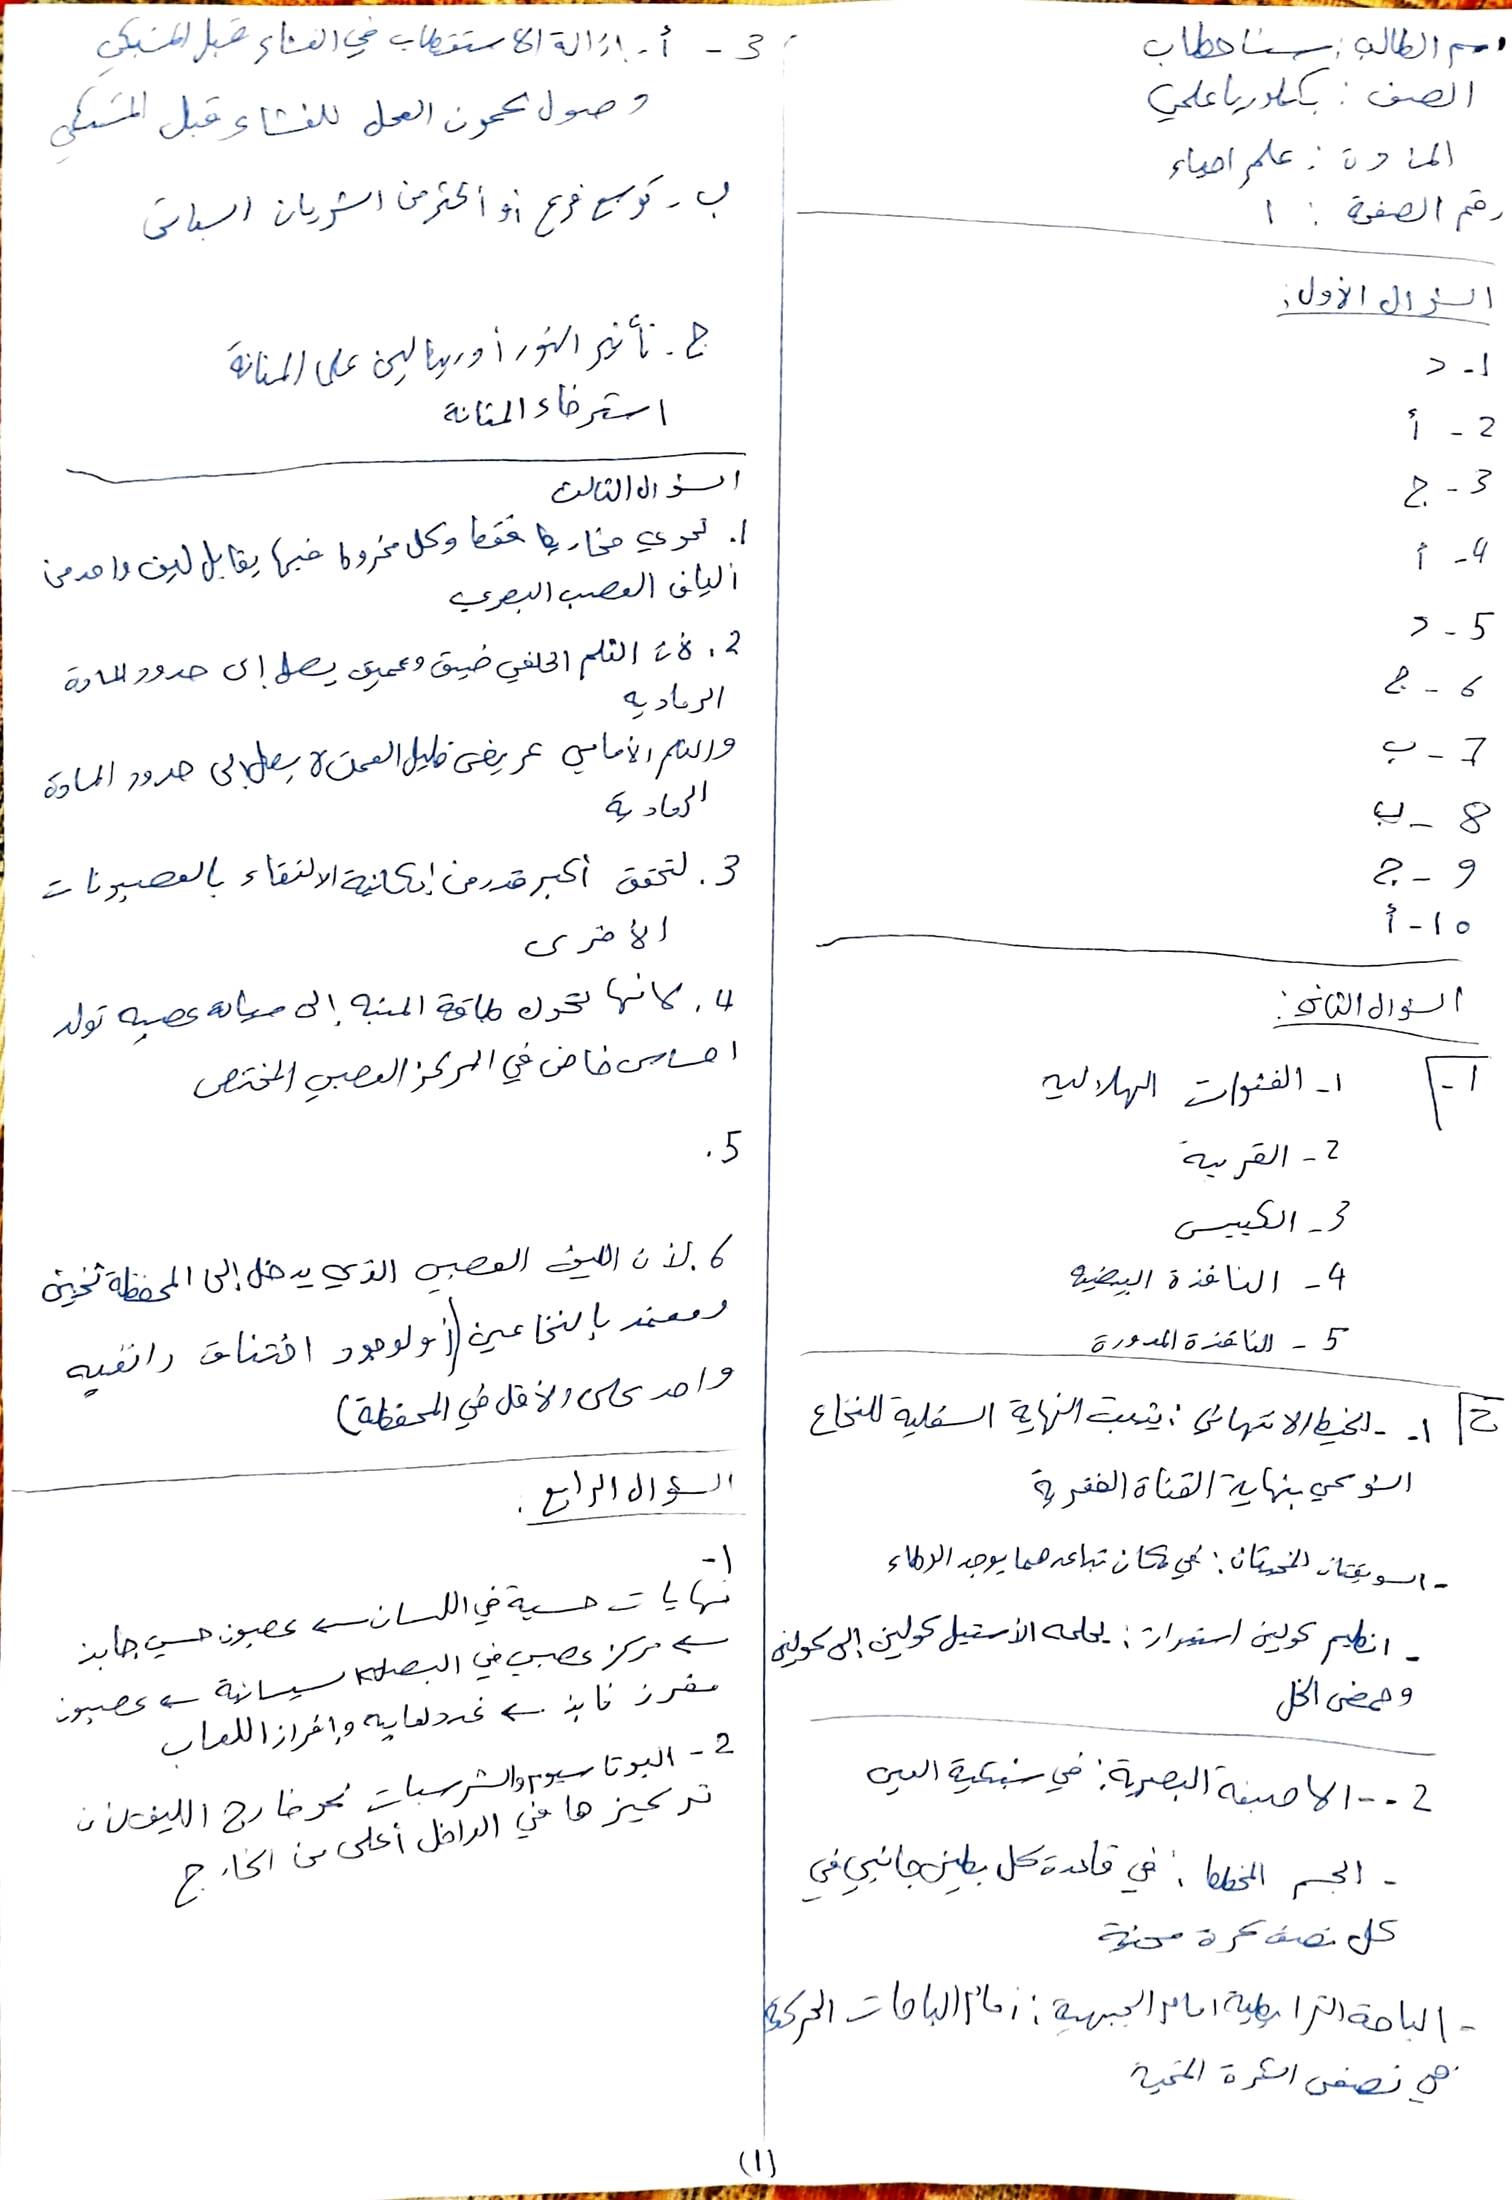 اسم الطالب: سنا حطاب
الصف: بكلوريا علمي
المادة: علم احياء
رقم الصفحة: 1
السؤال الأول:
1- د
2- أ
3- ج
4- أ
5- د
6- ج
7- ب
8- ب
9- ج
10- أ
السؤال الثاني:
1-
1- القنوات الهلالية
2- القريبة
3- الكييس
4- النافذة البيضية
5- النافذة المدورة
1- - الخيط الانتهائي: يثبت النهاية السفلية للنخاع
الشوكي بنهاية القناة الفقرية
- السويقتان المخيتان: في مكان تباعدهما يوجد الوطاء
- انظيم كولين استيراز: يحلمه الأستيل كولين إلى كولين
وحمض الخل
2- - الاصبغة البصرية: في شبكية العين
- الجسم المخطط: في قاعدة كل بطين جانبي في
كل نصف كرة مخية
- الباحة الترابطية امام الجبهية: أمام الباحات الحركية
في نصفي الكرة المخية
3- أ- إزالة الاستقطاب في الغشاء قبل المشبكي
وصول كمون العمل للغشاء قبل المشبكي
ب- توسع فرع أو أكثر من الشريان السباتي
ج- تأثير النور أدرينالين على المثانة
استرخاء المثانة
السؤال الثالث
1. تحوي مخاريط فقط وكل مخروط فيها يقابل ليف واحد من
ألياف العصب البصري
2. لأن الثلم الخلفي ضيق وعميق يصل إلى حدود المادة
الرمادية
والثلم الأمامي عريض قليل العمق لا يصل إلى حدود المادة
الرمادية
3. لتحقق أكبر قدر من إمكانية الالتقاء بالعصبونات
الأخرى
4. لانها تحول طاقة المنبه إلى سيالة عصبية تولد
احساس خاص في المركز العصبي المختص
5.
6. لأن الليف العصبي الذي يدخل إلى المحفظة ثخين
ومغمد بالنخاعين (أو لوجود اختناق رانفيه
واحد على الأقل في المحفظة)
السؤال الرابع:
1-
نهايات حسية في اللسان ← عصبون حسي جابذ
← مركز عصبي في البصلة السيسائية ← عصبون
مفرز نابذ ← غدد لعابية وإفراز اللعاب
2- البوتاسيوم والشرسبات نحو خارج الليف لأن
تركيزها في الداخل أعلى من الخارج
(1)